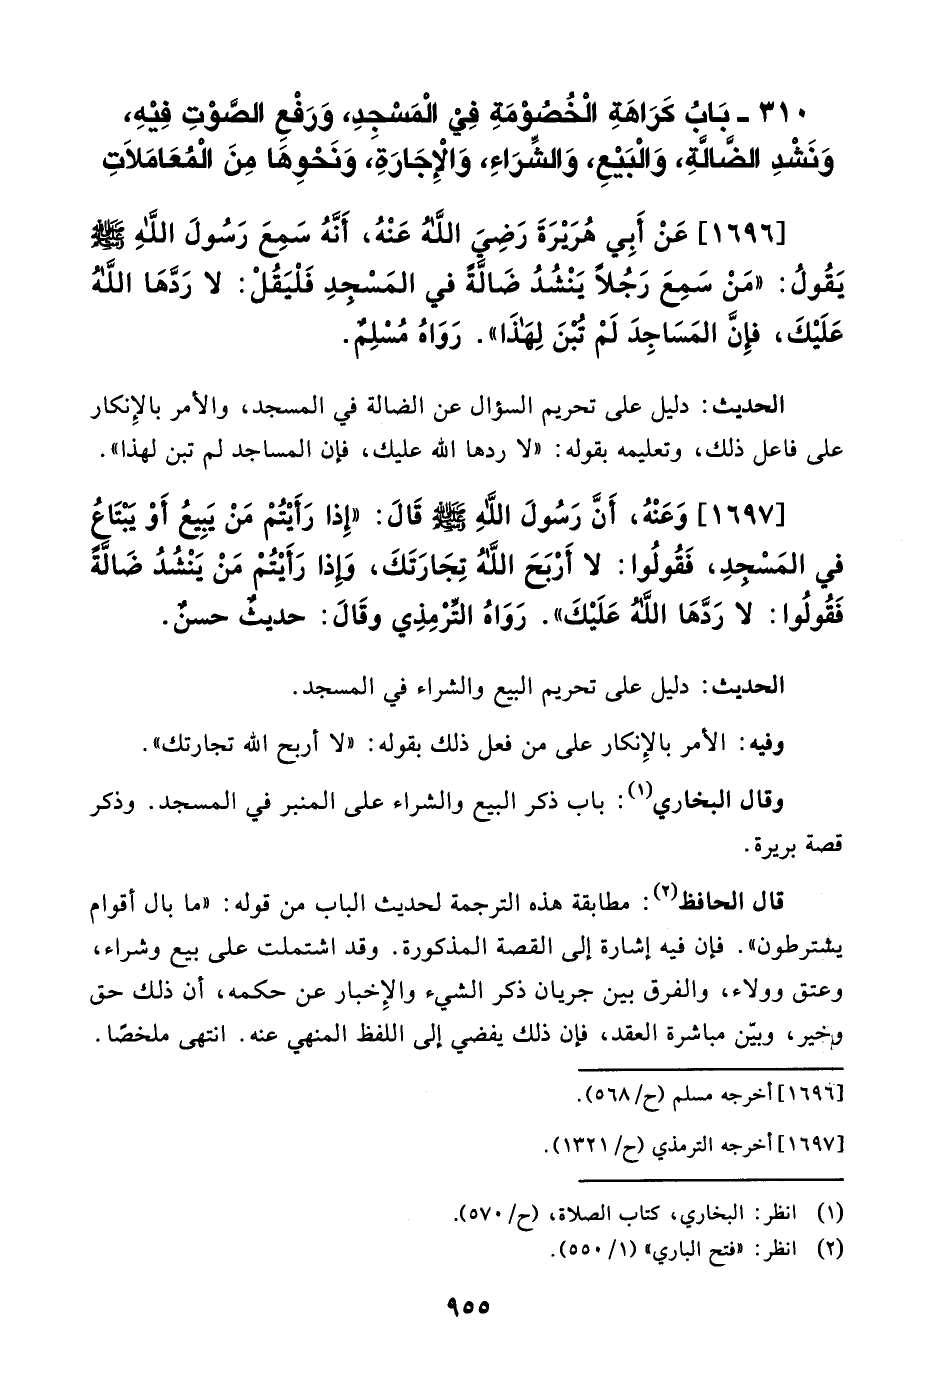 ٣١٠ - بَابُ كَرَاهَةِ الْخُصُوْمَةِ فِيْ الْمَسْجِدِ، وَرَفْعِ الصَّوْتِ فِيْهِ،
وَنَشْدِ الضَّالَّةِ، وَالْبَيْعِ، وَالشِّرَاءِ، وَالْإِجَارَةِ، وَنَحْوِهَا مِنَ الْمُعَامَلاَتِ
[١٦٩٦] عَنْ أَبِي هُرَيْرَةَ رَضِيَ اللَّهُ عَنْهُ، أَنَّهُ سَمِعَ رَسُولَ اللَّهِ ﷺ
يَقُولُ: «مَنْ سَمِعَ رَجُلاً يَنْشُدُ ضَالَّةً في المَسْجِدِ فَلْيَقُلْ: لا رَدَّهَا اللَّهُ
عَلَيْكَ، فإنَّ المَسَاجِدَ لَمْ تُبْنَ لِهَذَا». رَوَاهُ مُسْلِمٌ.
الحديث: دليل على تحريم السؤال عن الضالة في المسجد، والأمر بالإِنكار
على فاعل ذلك، وتعليمه بقوله: «لا ردها الله عليك، فإن المساجد لم تبن لهذا».
[١٦٩٧] وَعَنْهُ، أَنَّ رَسُولَ اللَّهِ ﷺ قَالَ: «إِذا رَأَيْتُمْ مَنْ يَبِيعُ أَوْ يَبْتَاعُ
في المَسْجِدِ، فَقُولُوا: لا أَرْبَحَ اللَّهُ تِجَارَتَكَ، وَإِذا رَأَيْتُمْ مَنْ يَنْشُدُ ضَالَّةً
فَقُولُوا: لا رَدَّهَا اللَّهُ عَلَيْكَ». رَوَاهُ التِّرْمِذِي وقَالَ: حديثٌ حسنٌ.
الحديث: دليل على تحريم البيع والشراء في المسجد.
وفيه: الأمر بالإِنكار على من فعل ذلك بقوله: «لا أربح الله تجارتك».
وقال البخاري(١): باب ذكر البيع والشراء على المنبر في المسجد. وذكر
قصة بريرة.
قال الحافظ(٢): مطابقة هذه الترجمة لحديث الباب من قوله: «ما بال أقوام
يشترطون». فإن فيه إشارة إلى القصة المذكورة. وقد اشتملت على بيع وشراء،
وعتق وولاء، والفرق بين جريان ذكر الشيء والإِخبار عن حكمه، أن ذلك حق
وخير، وبيّن مباشرة العقد، فإن ذلك يفضي إلى اللفظ المنهي عنه. انتهى ملخصًا.
[١٦٩٦] أخرجه مسلم (ح/٥٦٨).
[١٦٩٧] أخرجه الترمذي (ح/١٣٢١).
(١) انظر: البخاري، كتاب الصلاة، (ح/٥٧٠).
(٢) انظر: «فتح الباري» (١/٥٥٠).
٩٥٥